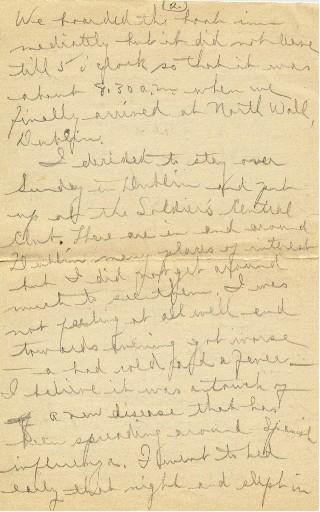 (2)
We boarded the boat im-
mediately but it did not leave
till 5 o'clock so that it was
about 8.30 a.m. when we
finally arrived at North Wall,
Dublin.
I decided to stay over
Sunday in Dublin and put
up at the Soldier's Central
Club. There are in and around
Dublin many places of interest
but I did not get around
much to see them. I was
not feeling at all well and
towards evening got worse
— a bad cold and a fever —
I believe it was a touch of
a new disease that has
been spreading around Spanish
influenza. I went to bed
early that night and slept in